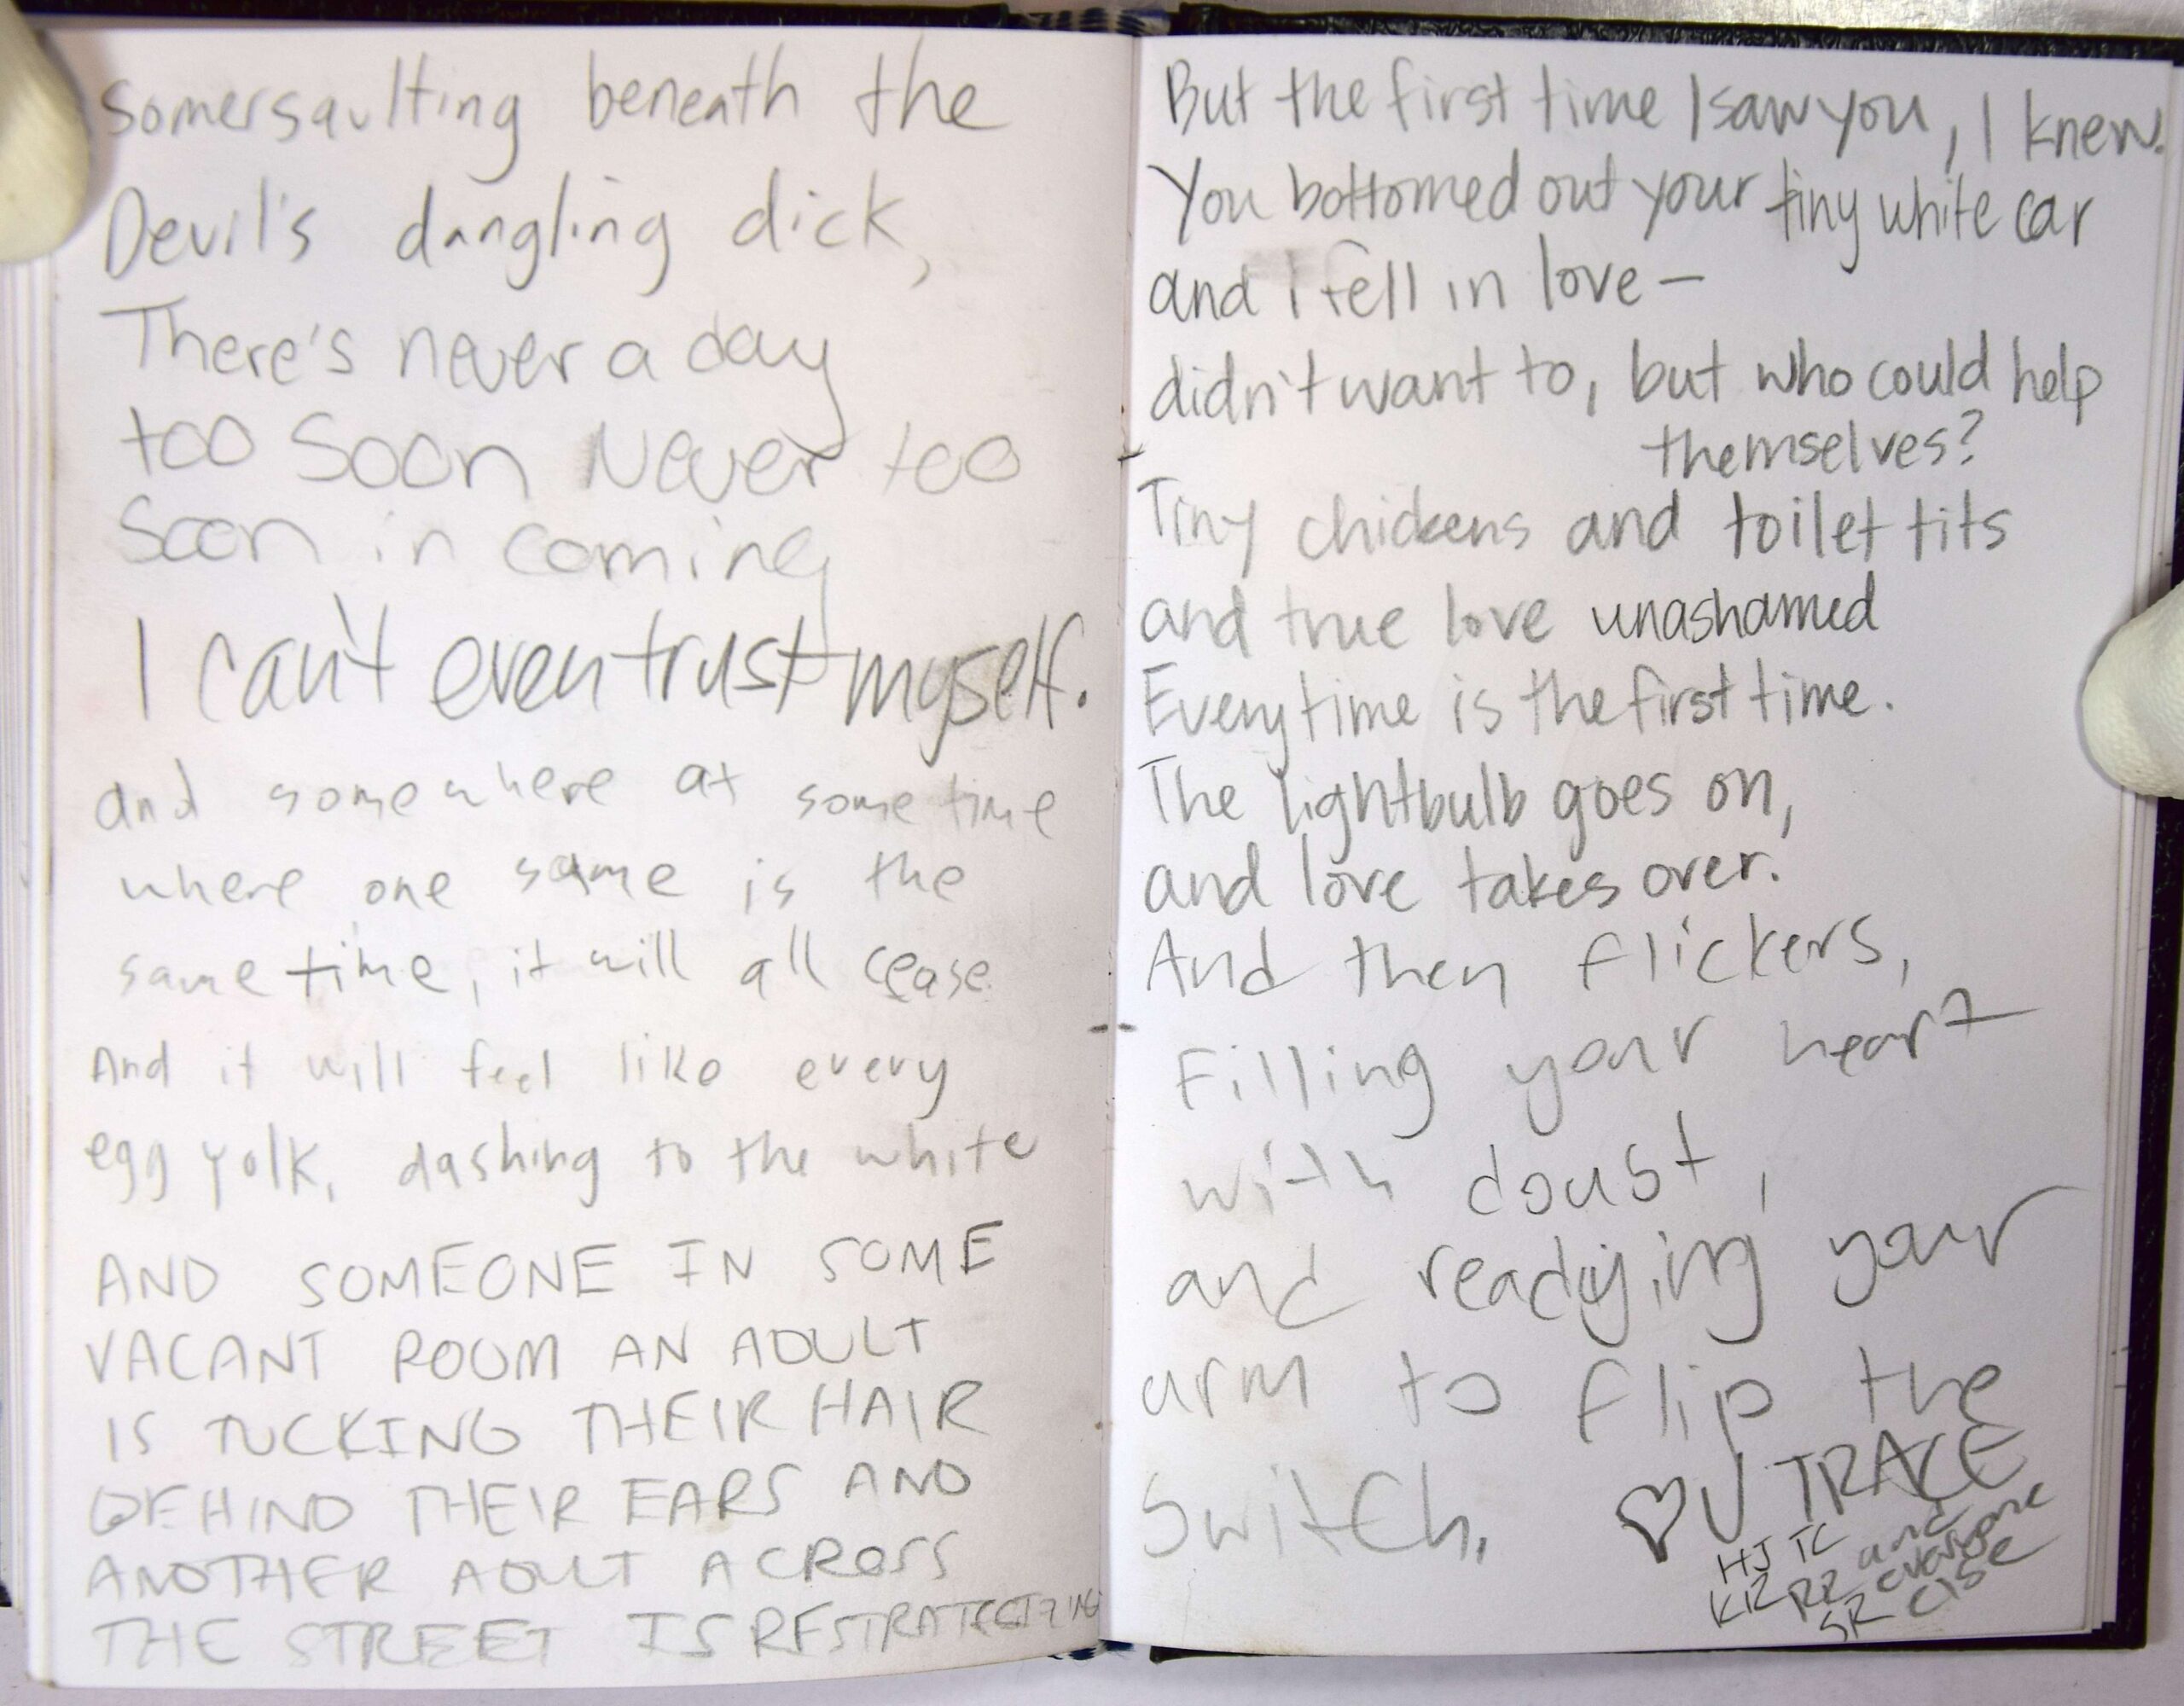 somersaulting beneath the
Devil's dangling dick,
There's never a day
too soon Never too
soon in coming
I can't even trust myself.
and somewhere at some time
where one same is the
same time, it will all cease
And it will feel like every
egg yolk, dashing to the white
AND SOMEONE IN SOME
VACANT ROOM AN ADULT
IS TUCKING THEIR HAIR
BEHIND THEIR EARS AND
ANOTHER ADULT ACROSS
THE STREET IS RESTRATEGIZING
But the first time I saw you, I knew.
You bottomed out your tiny white car
and I fell in love —
didn't want to, but who could help
themselves?
Tiny chickens and toilet tits
and true love unashamed
Everytime is the first time.
The lightbulb goes on,
and love takes over.
And then flickers,
Filling your heart
with doubt,
and readying your
arm to flip the
switch.
♡ U TRACE
HJ TC
KR RZ and
SR everyone
else